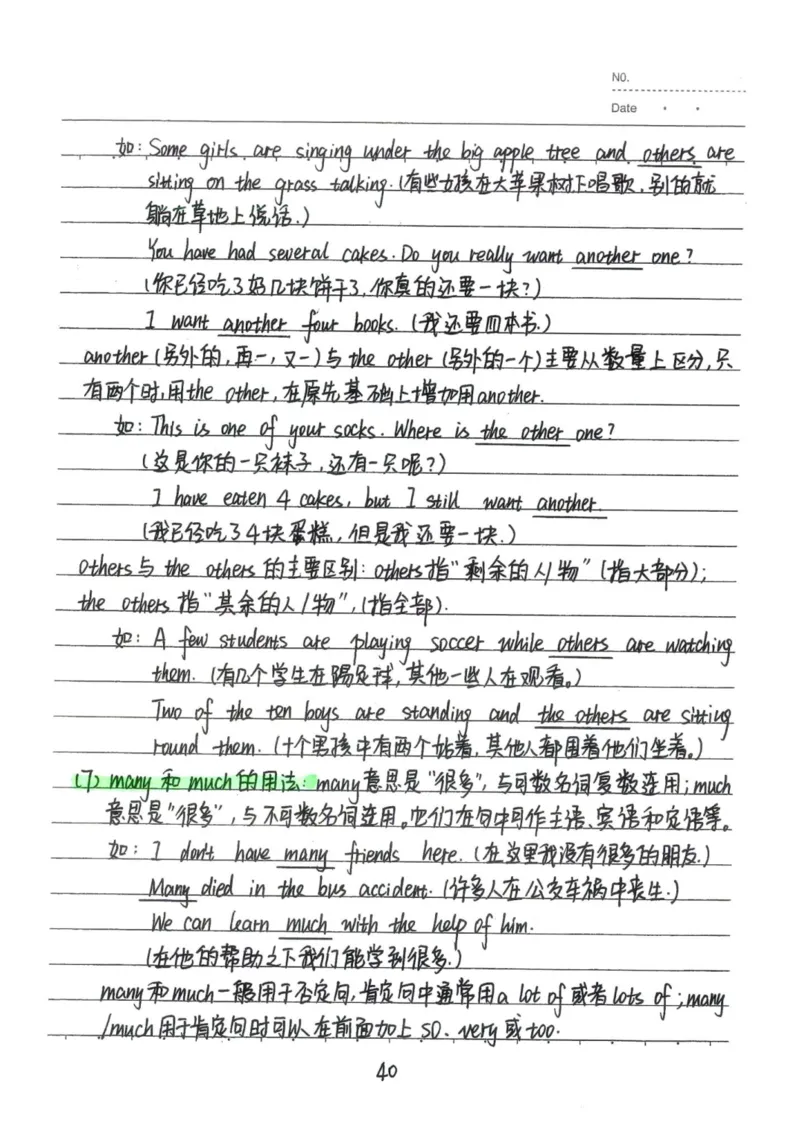 NO.
Date
如: Some girls are singing under the big apple tree and others are
sitting on the grass talking. (有些女孩在大苹果树下唱歌, 别的就
躺在草地上说话.)
You have had several cakes. Do you really want another one?
(你已经吃了好几块饼干了, 你真的还要一块?)
I want another four books. (我还要四本书.)
another (另外的, 再一, 又一) 与 the other (另外的一个) 主要从数量上区分, 只
有两个时, 用 the other, 在原先基础上增加用 another.
如: This is one of your socks. Where is the other one?
(这是你的一只袜子, 还有一只呢?)
I have eaten 4 cakes, but I still want another.
(我已经吃了4块蛋糕, 但是我还要一块.)
others 与 the others 的主要区别: others 指“剩余的人/物” (指大部分);
the others 指“其余的人/物”, (指全部).
如: A few students are playing soccer while others are watching
them. (有几个学生在踢足球, 其他一些人在观看。)
Two of the ten boys are standing and the others are sitting
round them. (十个男孩中有两个站着, 其他人都围着他们坐着。)
(7) many 和 much 的用法: many 意思是“很多”, 与可数名词复数连用; much
意思是“很多”, 与不可数名词连用。它们在句中可作主语、宾语和定语等。
如: I don't have many friends here. (在这里我没有很多的朋友.)
Many died in the bus accident. (许多人在公交车祸中丧生.)
We can learn much with the help of him.
(在他的帮助之下我们能学到很多.)
many 和 much 一般用于否定句, 肯定句中通常用 a lot of 或者 lots of; many
/much 用于肯定句时可以在前面加上 so、very 或 too.
40